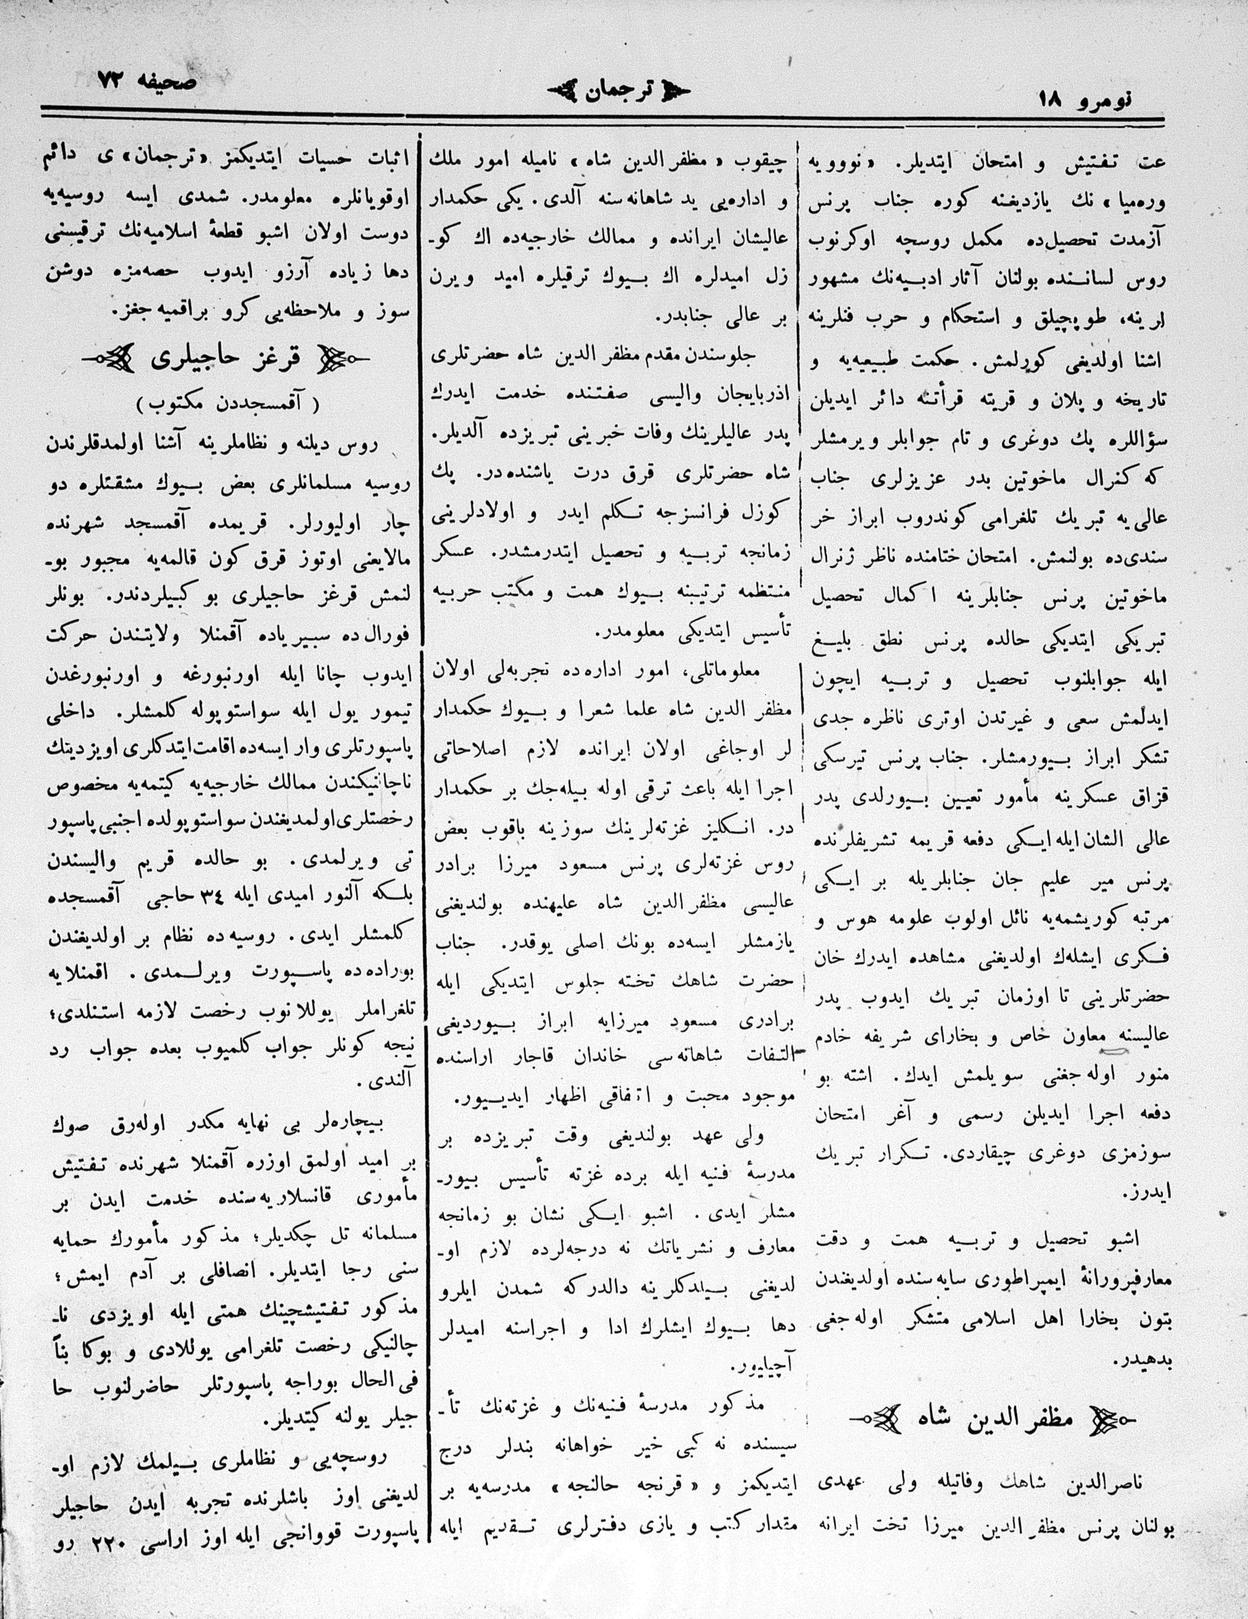 نومرو ١٨
ترجمان
صحیفه ٧٣
عت تفتیش و امتحان ایتدیلر. «نووویه
ورەمیا» نك یازدیغنه کوره جناب پرنس
آزمدت تحصیل‌ده مکمل روسچه اوکرنوب
روس لساننده بولنان آثار ادبیه‌نك مشهور
لرینه، طوپچیلق و استحکام و حرب فنلرینه
اشنا اولدیغی کورلمش. حکمت طبیعیه‌یه و
تاریخه و پلان و قریته قرأتنه دائر ایدیلن
سؤاللره پك دوغری و تام جوابلر ویرمشلر
که کنرال ماخوتین بدر عزیزلری جناب
عالی‌یه تبریك تلغرامی کوندروب ابراز خر
سندی‌ده بولنمش. امتحان ختامنده ناظر ژنرال
ماخوتین پرنس جنابلرینه اکمال تحصیل
تبریکی ایتدیکی حالده پرنس نطق بلیغ
ایله جوابلنوب تحصیل و تربیه ایچون
ایدلمش سعی و غیرتدن اوتری ناظره جدی
تشکر ابراز بیورمشلر. جناب پرنس تیرسکی
قزاق عسکرینه مأمور تعیین بیورلدی پدر
عالی الشان ایله ایکی دفعه قریمه تشریفلرنده
پرنس میر علیم جان جنابلریله بر ایکی
مرتبه کوریشمه‌یه نائل اولوب علومه هوس و
فکری ایشلەك اولدیغنی مشاهده ایدرك خان
حضرتلرینی تا اوزمان تبریك ایدوب پدر
عالیسنه معاون خاص و بخارای شریفه خادم
منور اوله‌جغنی سویلمش ایدك. اشته بو
دفعه اجرا ایدیلن رسمی و آغر امتحان
سوزمزی دوغری چیقاردی. تکرار تبریك
ایدرز.
اشبو تحصیل و تربیه همت و دقت
معارفپرورانهٔ ایمپراطوری سایه‌سنده اولدیغندن
بتون بخارا اهل اسلامی متشکر اوله‌جغی
بدهیدر.
مظفر الدین شاه
ناصرالدین شاهك وفاتیله ولی عهدی
بولنان پرنس مظفر الدین میرزا تخت ایرانه
چیقوب «مظفر الدین شاه» نامیله امور ملك
و اداره‌یی ید شاهانه‌سنه آلدی. یکی حکمدار
عالیشان ایرانده و ممالك خارجیه‌ده اك کو-
زل امیدلره اك بیوك ترقیلره امید ویرن
بر عالی جنابدر.
جلوسندن مقدم مظفر الدین شاه حضرتلری
اذربایجان والیسی صفتنده خدمت ایدرك
پدر عالیلرینك وفات خبرینی تبریزده آلدیلر.
شاه حضرتلری قرق درت یاشنده‌در. پك
کوزل فرانسزجه تکلم ایدر و اولادلرینی
زمانجه تربیه و تحصیل ایتدرمشدر. عسکر
منتظمه ترتیبنه بیوك همت و مکتب حربیه
تأسیس ایتدیکی معلومدر.
معلوماتلی، امور اداره‌ده تجربه‌لی اولان
مظفر الدین شاه علما شعرا و بیوك حکمدار
لر اوجاغی اولان ایرانده لازم اصلاحاتی
اجرا ایله باعث ترقی اوله بیله‌جك بر حکمدار
در. انکلیز غزته‌لرینك سوزینه باقوب بعض
روس غزته‌لری پرنس مسعود میرزا برادر
عالیسی مظفر الدین شاه علیهنده بولندیغنی
یازمشلر ایسه‌ده بونك اصلی یوقدر. جناب
حضرت شاهك تخته جلوس ایتدیکی ایله
برادری مسعود میرزایه ابراز بیوردیغی
التفات شاهانه‌سی خاندان قاجار اراسنده
موجود محبت و اتفاقی اظهار ایدیور.
ولی عهد بولندیغی وقت تبریزده بر
مدرسهٔ فنیه ایله برده غزته تأسیس بیور-
مشلر ایدی. اشبو ایکی نشان بو زمانجه
معارف و نشریاتك نه درجه‌لرده لازم او-
لدیغنی بیلدکلرینه دالدرکه شمدن ایلرو
دها بیوك ایشلرك ادا و اجراسنه امیدلر
آچیلیور.
مذکور مدرسهٔ فنیه‌نك و غزته‌نك تأ-
سیسنده نه کبی خیر خواهانه بندلر درج
ایتدیکمز و «قرنجه حالنجه» مدرسه‌یه بر
مقدار کتب و یازی دفترلری تقدیم ایله
اثبات حسیات ایتدیکمز «ترجمان» ی دائم
اوقویانلره معلومدر. شمدی ایسه روسیه‌یه
دوست اولان اشبو قطعهٔ اسلامیه‌نك ترقیسنی
دها زیاده آرزو ایدوب حصه‌مزه دوشن
سوز و ملاحظه‌یی کرو براقمیه‌جغز.
قرغز حاجیلری
(آقمسجددن مکتوب)
روس دیلنه و نظاملرینه آشنا اولمدقلرندن
روسیه مسلمانلری بعض بیوك مشقتلره دو
چار اولیورلر. قریمده آقمسجد شهرنده
مالایعنی اوتوز قرق کون قالمه‌یه مجبور بو-
لنمش قرغز حاجیلری بو کبیلردندر. بونلر
فورال‌ده سبیریاده آقمنلا ولایتندن حرکت
ایدوب چانا ایله اورنبورغه و اورنبورغدن
تیمور یول ایله سواستوپوله کلمشلر. داخلی
پاسپورتلری وار ایسه‌ده اقامت‌ایتدکلری اویزدینك
ناچالنیکندن ممالك خارجیه‌یه کیتمه‌یه مخصوص
رخصتلری‌اولمدیغندن سواستوپولده اجنبی پاسپور
تی ویرلمدی. بو حالده قریم والیسندن
بلکه آلنور امیدی ایله ٣٤ حاجی آقمسجده
کلمشلر ایدی. روسیه‌ده نظام بر اولدیغندن
بوراده‌ده پاسپورت ویرلمدی. اقمنلایه
تلغراملر یوللانوب رخصت لازمه استنلدی؛
نیجه کونلر جواب کلمیوب بعده جواب رد
آلندی.
بیچاره‌لر بی نهایه مکدر اوله‌رق صوك
بر امید اولمق اوزره آقمنلا شهرنده تفتیش
مأموری قانسلاریه‌سنده خدمت ایدن بر
مسلمانه تل چکدیلر؛ مذکور مأمورك حمایه
سنی رجا ایتدیلر. انصافلی بر آدم ایمش؛
مذکور تفتیشچینك همتی ایله اویزدی نا-
چالنیکی رخصت تلغرامی یوللادی و بوکا بناً
فی‌الحال بوراجه پاسپورتلر حاضرلنوب حا
جیلر یولنه کیتدیلر.
روسچه‌یی و نظاملری بیلمك لازم او-
لدیغنی اوز باشلرنده تجربه ایدن حاجیلر
پاسپورت قووانجی ایله اوز اراسی ٢٢٠ رو